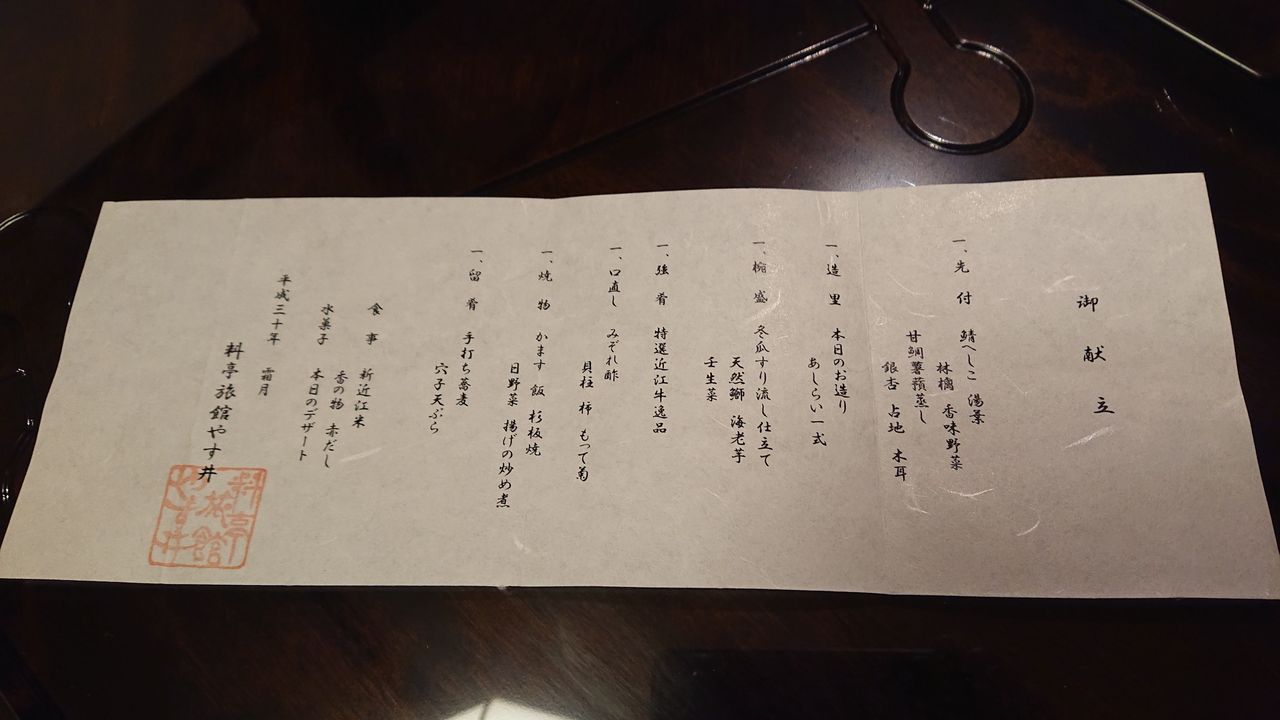 御献立
一、先付 鯖へしこ 湯葉
林檎 香味野菜
甘鯛薯蕷蒸し
銀杏 占地 木耳
一、造里 本日のお造り
あしらい一式
一、椀盛 冬瓜すり流し仕立て
天然鰤 海老芋
壬生菜
一、強肴 特選近江牛逸品
一、口直し みぞれ酢
貝柱 柿 もって菊
一、焼物 かます 飯 杉板焼
日野菜 揚げの炒め煮
一、留肴 手打ち蕎麦
穴子天ぷら
食事 新近江米
香の物 赤だし
水菓子 本日のデザート
平成三十年 霜月
料亭旅館やす井
料亭
旅館
やす井